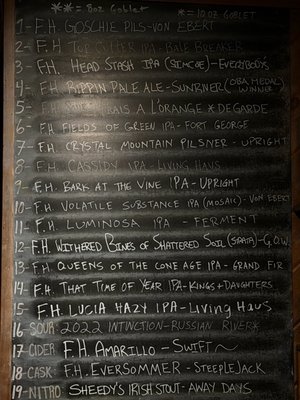 **= 8oz Goblet *= 10oz Goblet
1- F.H. Goschie Pils- Von Ebert
2- F.H. Top Cutter IPA- Bale Breaker
3- F.H. Head Stash IPA (Simcoe)- Everybody's
4- F.H. Rippin Pale Ale- Sunriver (OBA Medal Winner)
5- F.H. Frais A L'Orange * deGarde
6- F.H. Fields of Green IPA- Fort George
7- F.H. Crystal Mountain Pilsner- Upright
8- F.H. Cassidy IPA- Living Haus
9- F.H. Bark at the Vine IPA- Upright
10- F.H. Volatile Substance IPA (Mosaic)- Von Ebert
11- F.H. Luminosa IPA - Ferment
12- F.H. Withered Bines of Shattered Soil (Strata)- G.O.W.
13- F.H. Queens of the Cone Age IPA- Grand Fir
14- F.H. That Time of Year IPA- Kings + Daughters
15- F.H. Lucia Hazy IPA- Living Haus
16- Sour- 2022 Intinction- Russian River*
17- Cider F.H. Amarillo- Swift~
18- Cask F.H. EverSommer- SteepleJack
19- Nitro Sheedy's Irish Stout- Away Days